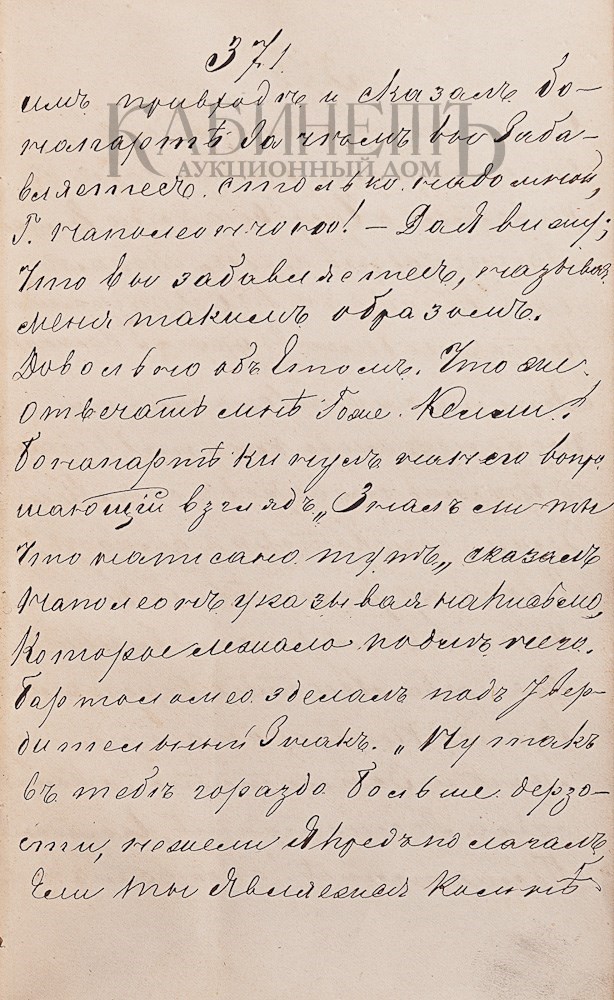 371.
имъ приходъ и сказалъ Бо-
напартѣ За чѣмъ вы Заба-
КАБИНЕТЪ
АУКЦИОННЫЙ ДОМ
вляетесь столько надо мной,
Г. Наполеон – Да Я вижу;
Что вы забавляетесь, называя
меня такимъ образомъ.
Довольно объ Етомъ. Что же
отвечать мнѣ Гоже
Бонапартѣ кинулъ на него вопро
шающій взглядъ „Зналъ ли ты
Что написано тутъ„ сказалъ
Наполеонъ указывая на письмо,
Которое лежало подлъ него.
Бартоломео зделалъ подъ Твер-
дительный Знакъ. „Ну такъ
въ тебѣ гораздо Больше дерзо-
сти, нежели Я предъполагалъ
Ели ты Являешся Ко мнѣ